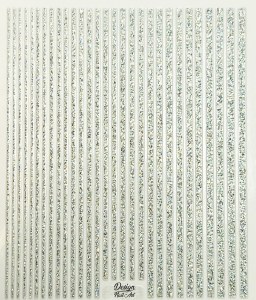 Design
Nail Art